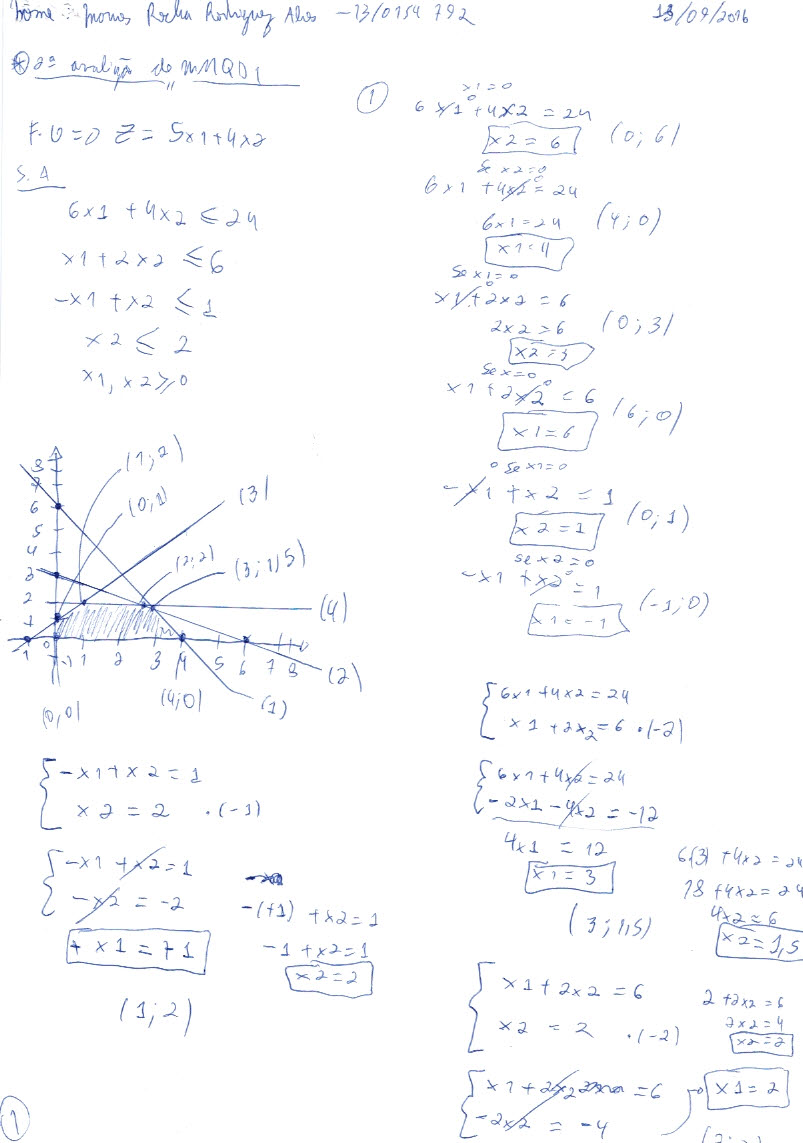 Nome: Rocha Rodrigues Alves - 13/0154792
13/09/2016
2ª avalição de MMQD1
F.O = Z = 5x1+4x2
S.A
6x1 + 4x2 ≤ 24
x1 + 2x2 ≤ 6
-x1 + x2 ≤ 1
x2 ≤ 2
x1, x2 ≥ 0
8
7
6
5
4
3
2
1
0
-1
-1
1
2
3
4
5
6
7
8
(1;2)
(0;1)
(3)
(2;2)
(3;1,5)
(4)
(2)
(1)
(4;0)
(0;0)
-x1 + x2 = 1
x2 = 2 .(-1)
-x1 + x2 = 1
-x2 = -2
+x1 = +1
-(+1) + x2 = 1
-1 + x2 = 1
x2 = 2
(1;2)
1
1
x1=0
0
6x1 + 4x2 = 24
x2 = 6 (0;6)
Se x2=0
0
6x1 + 4x2 = 24
6x1 = 24 (4;0)
x1=4
Se x1=0
0
x1 + 2x2 = 6
2x2 = 6 (0;3)
x2 = 3
Se x=0
0
x1 + 2x2 = 6 (6;0)
x1=6
0 Se x1=0
-x1 + x2 = 1
x2 = 1 (0;1)
Se x2=0
0
-x1 + x2 = 1 (-1;0)
x1 = -1
6x1 + 4x2 = 24
x1 + 2x2 = 6 .(-2)
6x1 + 4x2 = 24
-2x1 - 4x2 = -12
4x1 = 12
x1 = 3
(3;1,5)
6(3) + 4x2 = 24
18 + 4x2 = 24
4x2 = 6
x2 = 1,5
x1 + 2x2 = 6
x2 = 2 .(-2)
2 + 2x2 = 6
2x2 = 4
x2 = 2
x1 + 2x2 = 6
-2x2 = -4
x1 = 2